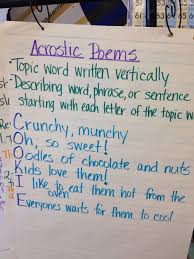 Acrostic Poems
• Topic word written vertically
• Describing word, phrase, or sentence
starting with each letter of the topic w
Crunchy, munchy
Oh, so sweet!
Oodles of chocolate and nuts
Kids love them!
I like to eat them hot from the
oven
Everyone waits for them to cool